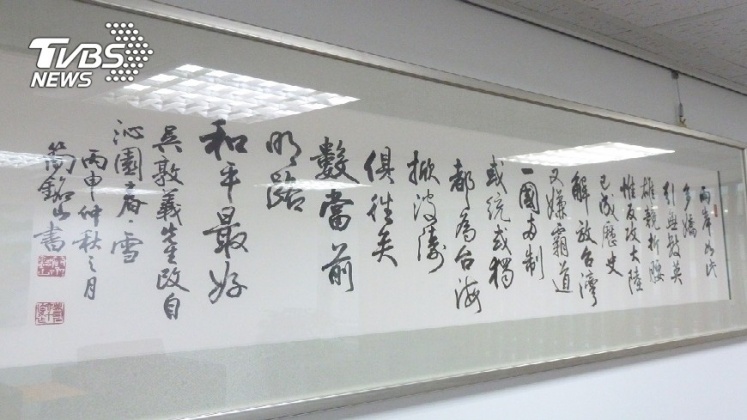 TVBS
NEWS
兩岸如此
多嬌
引無數英
雄競折腰
惟反攻大陸
已成歷史
解放台灣
又嫌霸道
一國兩制
或統或獨
都為台海
掀波濤
俱往矣
數當前
明路
和平最好
吳敦義先生改自
沁園春雪
丙申仲秋之月
銘山書